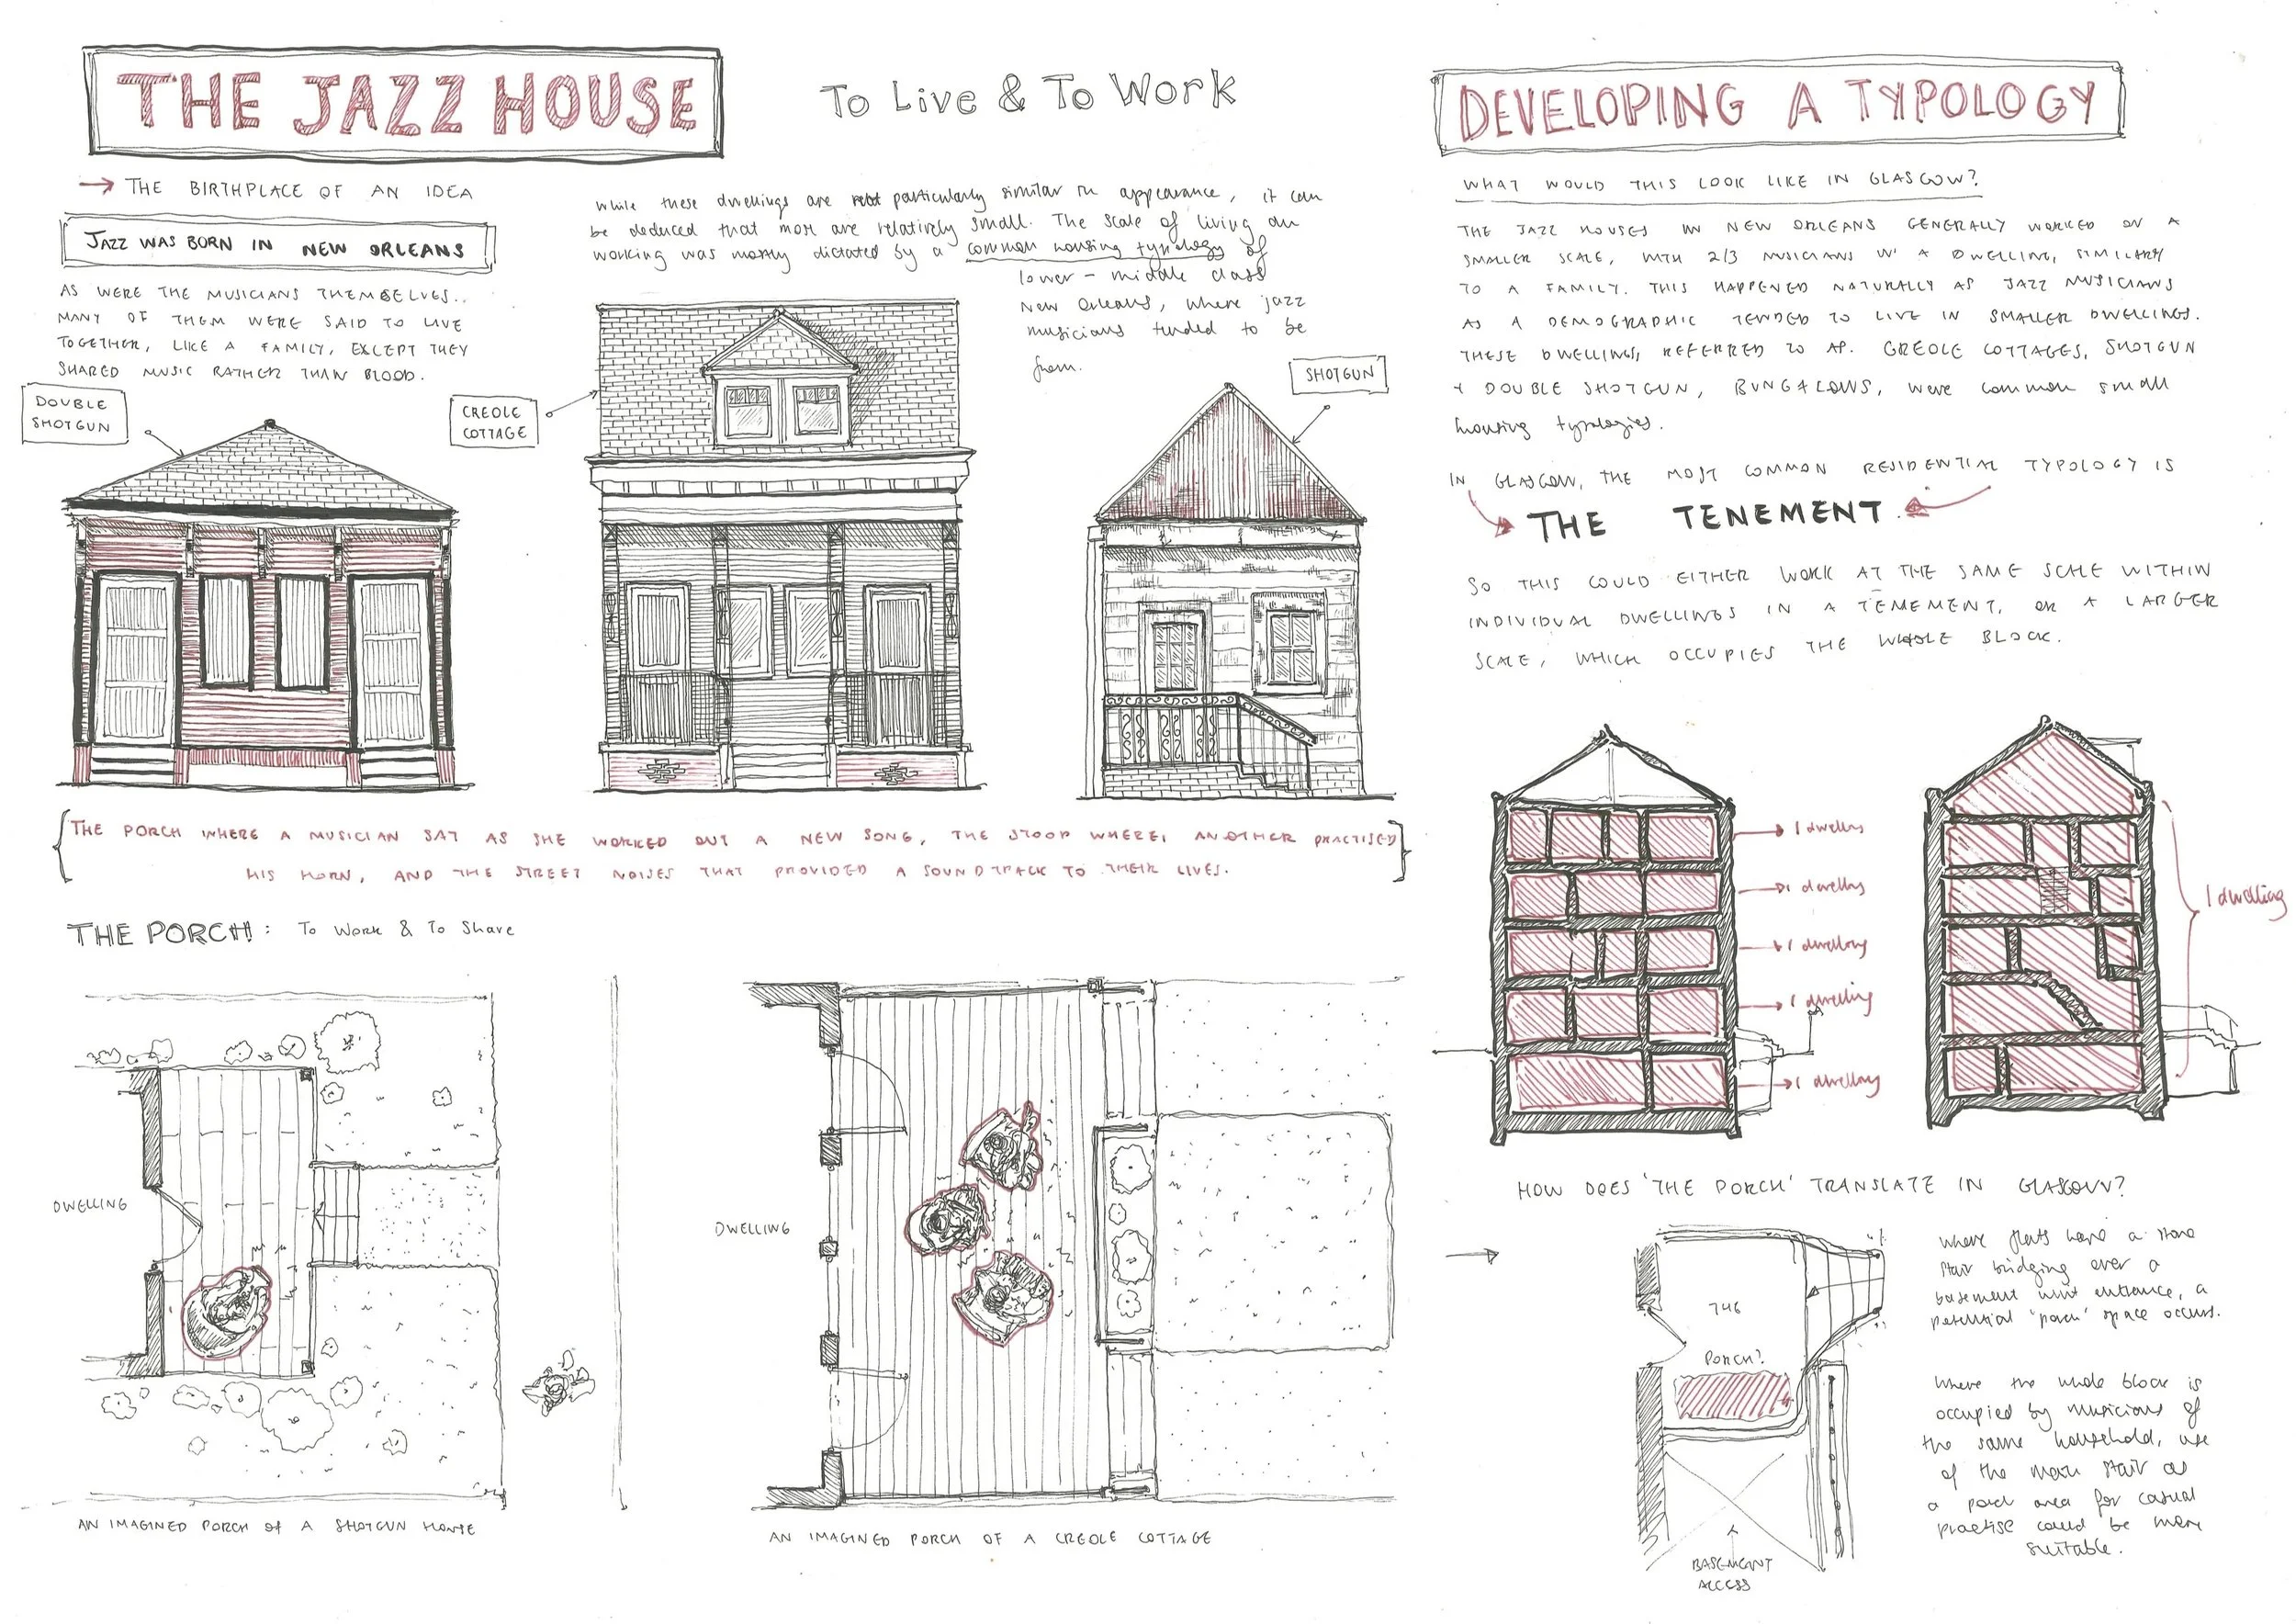 THE JAZZ HOUSE
To Live & To Work
→ THE BIRTHPLACE OF AN IDEA
JAZZ WAS BORN IN NEW ORLEANS
AS WERE THE MUSICIANS THEMSELVES..
MANY OF THEM WERE SAID TO LIVE
TOGETHER, LIKE A FAMILY, EXCEPT THEY
SHARED MUSIC RATHER THAN BLOOD.
while these dwellings are particularly similar in appearance, it can
be deduced that most are relatively small. The scale of living an
working was mostly dictated by a common housing typology of
lower - middle class
New Orleans, where jazz
musicians tended to be
from.
DOUBLE
SHOTGUN
CREOLE
COTTAGE
SHOTGUN
{THE PORCH WHERE A MUSICIAN SAT AS SHE WORKED OUT A NEW SONG, THE STOOP WHERE ANOTHER PRACTISED
HIS HORN, AND THE STREET NOISES THAT PROVIDED A SOUNDTRACK TO THEIR LIVES.}
THE PORCH: To Work & To Share
DWELLING
AN IMAGINED PORCH OF A SHOTGUN HOUSE
DWELLING
AN IMAGINED PORCH OF A CREOLE COTTAGE
DEVELOPING A TYPOLOGY
WHAT WOULD THIS LOOK LIKE IN GLASGOW?
THE JAZZ HOUSES IN NEW ORLEANS GENERALLY WORKED ON A
SMALLER SCALE, WITH 2/3 MUSICIANS IN A DWELLING, SIMILARLY
TO A FAMILY. THIS HAPPENED NATURALLY AS JAZZ MUSICIANS
AS A DEMOGRAPHIC TENDED TO LIVE IN SMALLER DWELLINGS.
THESE DWELLINGS, REFERRED TO AS CREOLE COTTAGES, SHOTGUN
+ DOUBLE SHOTGUN, BUNGALOWS, were common small
housing typologies.
IN GLASGOW, THE MOST COMMON RESIDENTIAL TYPOLOGY IS
THE TENEMENT.
SO THIS COULD EITHER WORK AT THE SAME SCALE WITHIN
INDIVIDUAL DWELLINGS IN A TENEMENT, OR A LARGER
SCALE, WHICH OCCUPIES THE WHOLE BLOCK.
1 dwelling
1 dwelling
1 dwelling
1 dwelling
1 dwelling
1 dwelling
HOW DOES 'THE PORCH' TRANSLATE IN GLASGOW?
746
PORCH?
BASEMENT
ACCESS
Where flats have a stone
stair bridging over a
basement unit entrance, a
potential 'porch' space occurs.
Where the whole block is
occupied by musicians of
the same household, use
of the main stair as
a porch area for casual
practise could be more
suitable.